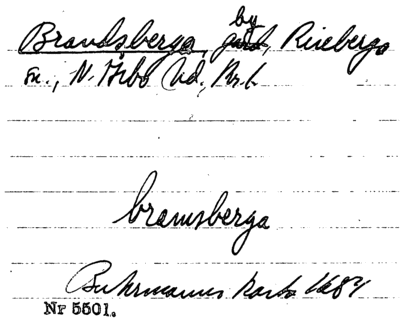 Brandsberga, by, Riseberga
sn., N. Åsbo hd, Kr. l.
bramsberga
Buhrmanns karta 1684
Nr 5501.